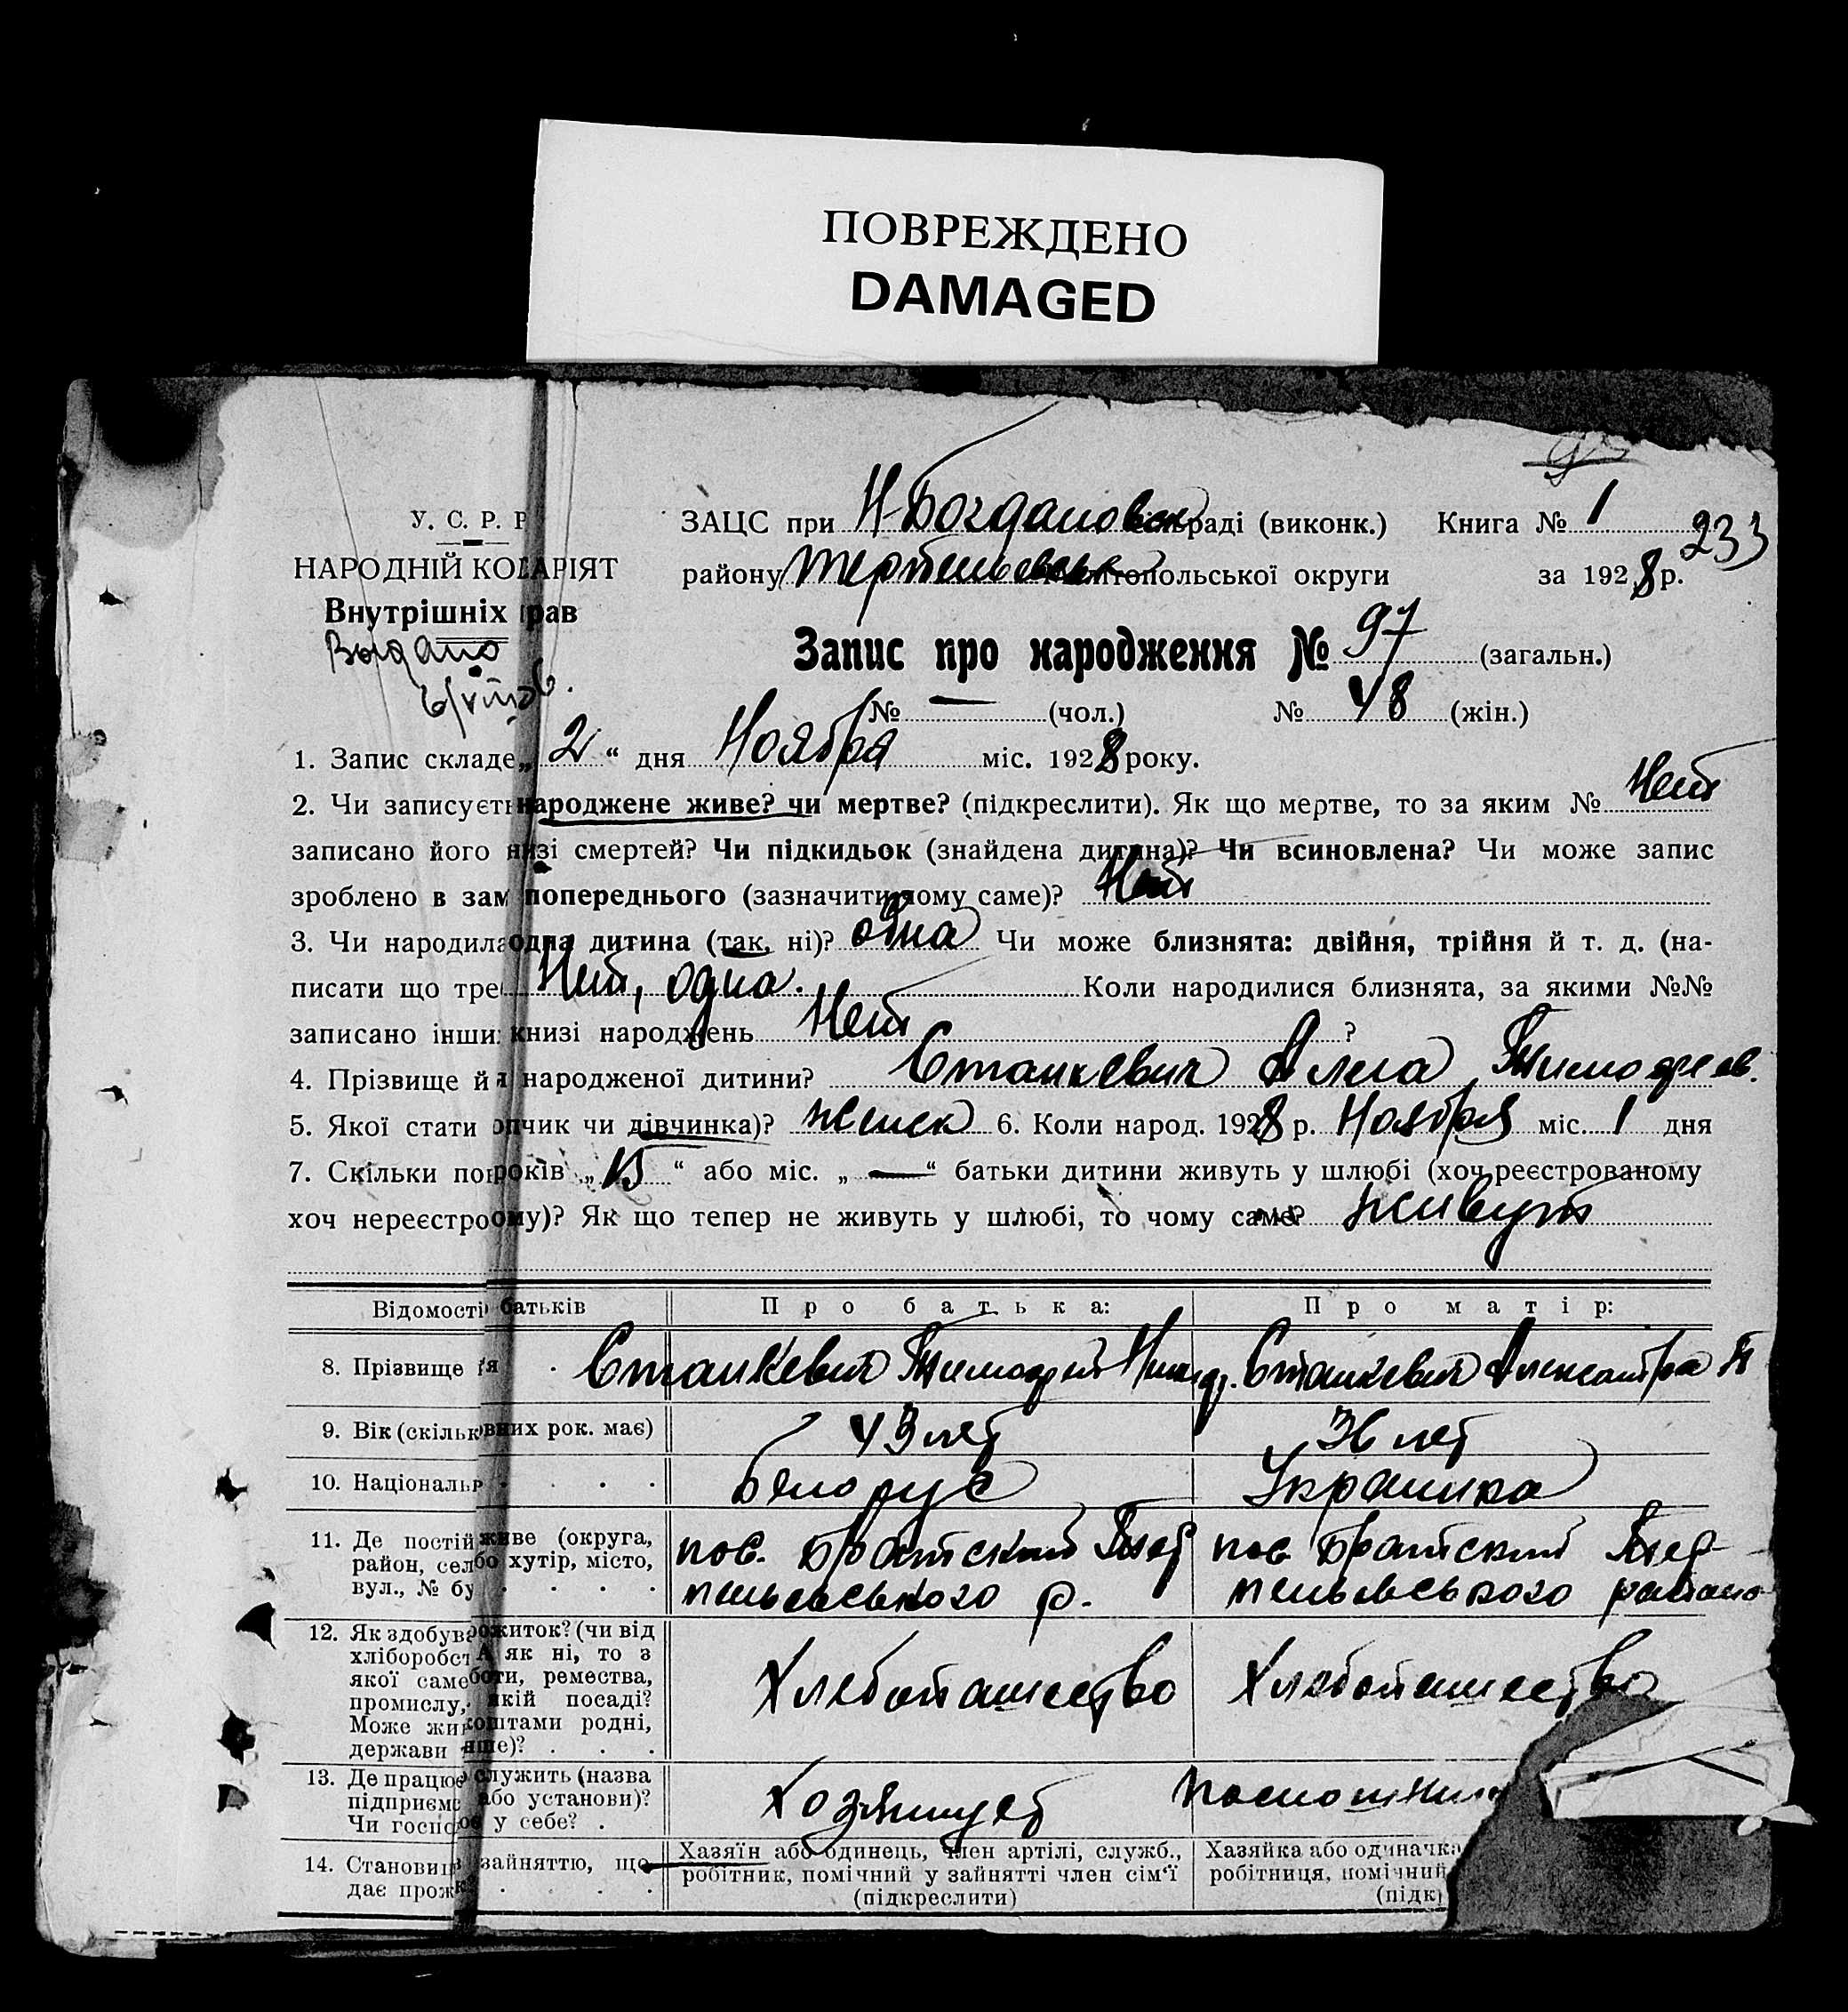 ПОВРЕЖДЕНО
DAMAGED
У. С. Р. Р
НАРОДНІЙ КО АРІЯТ
Внутрішніх рав
ЗАЦС при Н-Богдановск раді (виконк.) Книга № 1
233
району Терпеньевськ топольської округи за 1928 р.
Запис про народження № 97 (загальн.)
№ — (чол.) № 48 (жін.)
1. Запис складе „ 2 “ дня Ноября міс. 1928 року.
2. Чи записуєть народжене живе? чи мертве? (підкреслити). Як що мертве, то за яким № Нет
записано його низі смертей? Чи підкидьок (знайдена дитина)? Чи всиновлена? Чи може запис
зроблено в зам попереднього (зазначити чому саме)? Нет
3. Чи народила одна дитина (так, ні)? одна Чи може близнята: двійня, трійня й т. д. (на-
писати що тре Нет, одна. Коли народилися близнята, за якими №№
записано інши книзі народжень Нет ?
4. Прізвище й я народженої дитини? Станкевич Алла Тимофеев.
5. Якої стати опчик чи дівчинка)? женск 6. Коли народ. 1928 р. Ноября міс. 1 дня
7. Скільки пов років „ “ або міс. „ — “ батьки дитини живуть у шлюбі (хоч реєстрованому
хоч нереєстро ому)? Як що тепер не живуть у шлюбі, то чому саме? живут
Відомості батьків Про батька: Про матір:
8. Прізвище я . Станкевич Тимофей Станкевич Александра Т
9. Вік (скільк вних рок. має) 43 лет 36 лет
10. Національ . . . Белорус Украинка
11. Де постій живе (округа,
район, сел бо хутір, місто,
вул., № бу . . . .
пос. Братский Тер
пеньевського р.
пос. Братский Тер-
пеньевського району
12. Як здобува рожиток? (чи від
хліборобст А як ні, то з
якої саме боти, ремества,
промислу, якій посаді?
Може жив коштами родні,
держави нше)? . . .
Хлебопашество Хлебопашество
13. Де працює служить (назва
підприємс або установи)?
Чи госпо ює у себе? .
Хозяинует помошни
14. Становищ зайняттю, що
дає прож . . .
Хазяїн або одинець, член артілі, служб.,
робітник, помічний у зайнятті член сім'ї
(підкреслити)
Хазяйка або одиначка
робітниця, помічний
(підк